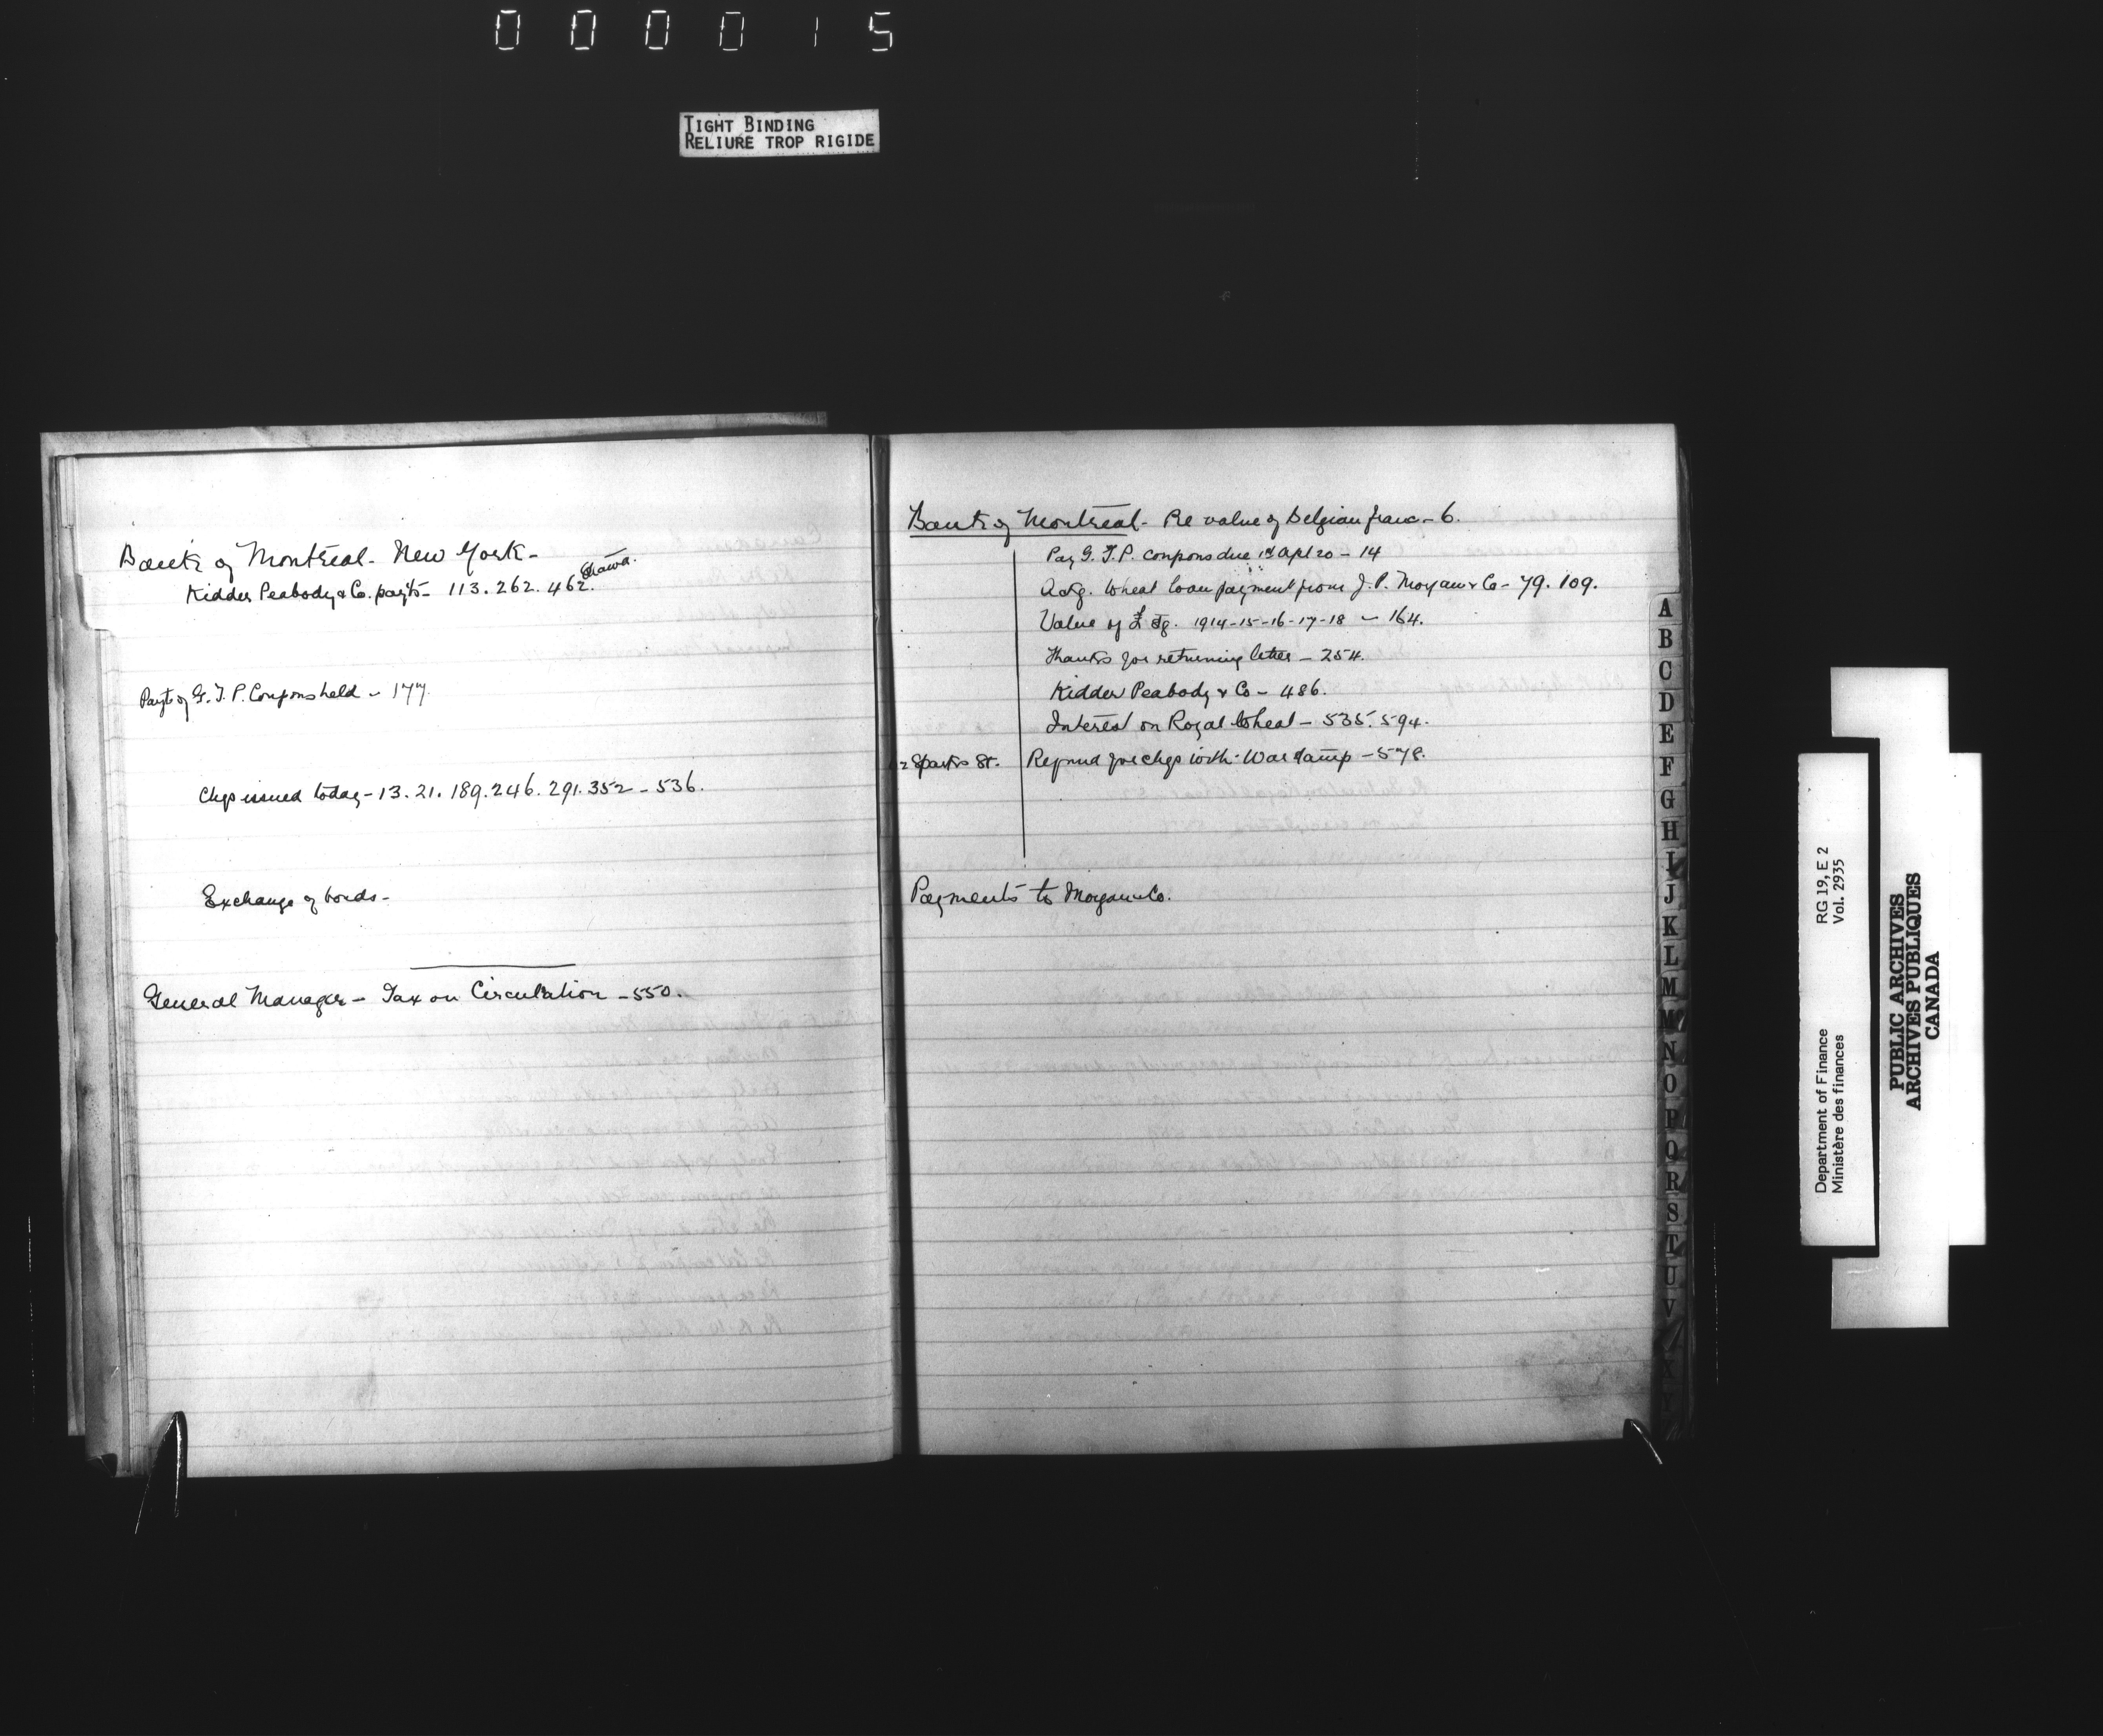 000015
TIGHT BINDING
RELIURE TROP RIGIDE
Bank of Montreal - New York -
Kidder Peabody & Co. payts - 113. 262. 462. Ottawa.
Payt of G.T.P. Coupons held - 177.
Chqs issued today - 13. 21. 189. 246. 291. 352 - 536.
Exchange of bonds -
General Manager - Tax on Circulation - 550.
Bank of Montreal - Re value of Belgian franc - 6.
Pay G.T.P. coupons due 1st Apl 20 - 14
Ackg. Wheat loan payment from J.P. Morgan & Co - 79. 109.
Value of £ stg. 1914-15-16-17-18 - 164.
Thanks for returning letter - 254.
Kidder Peabody & Co - 486.
Interest on Royal Wheat - 535. 594.
Sparks St. Refund for chqs with War Stamp - 578.
Payments to Morgan & Co.
A
B
C
D
E
F
G
H
I
J
K
L
M
Mc
N
O
P
Q
R
S
T
U
V
Department of Finance RG 19, E 2
Ministère des finances Vol. 2935
PUBLIC ARCHIVES
ARCHIVES PUBLIQUES
CANADA